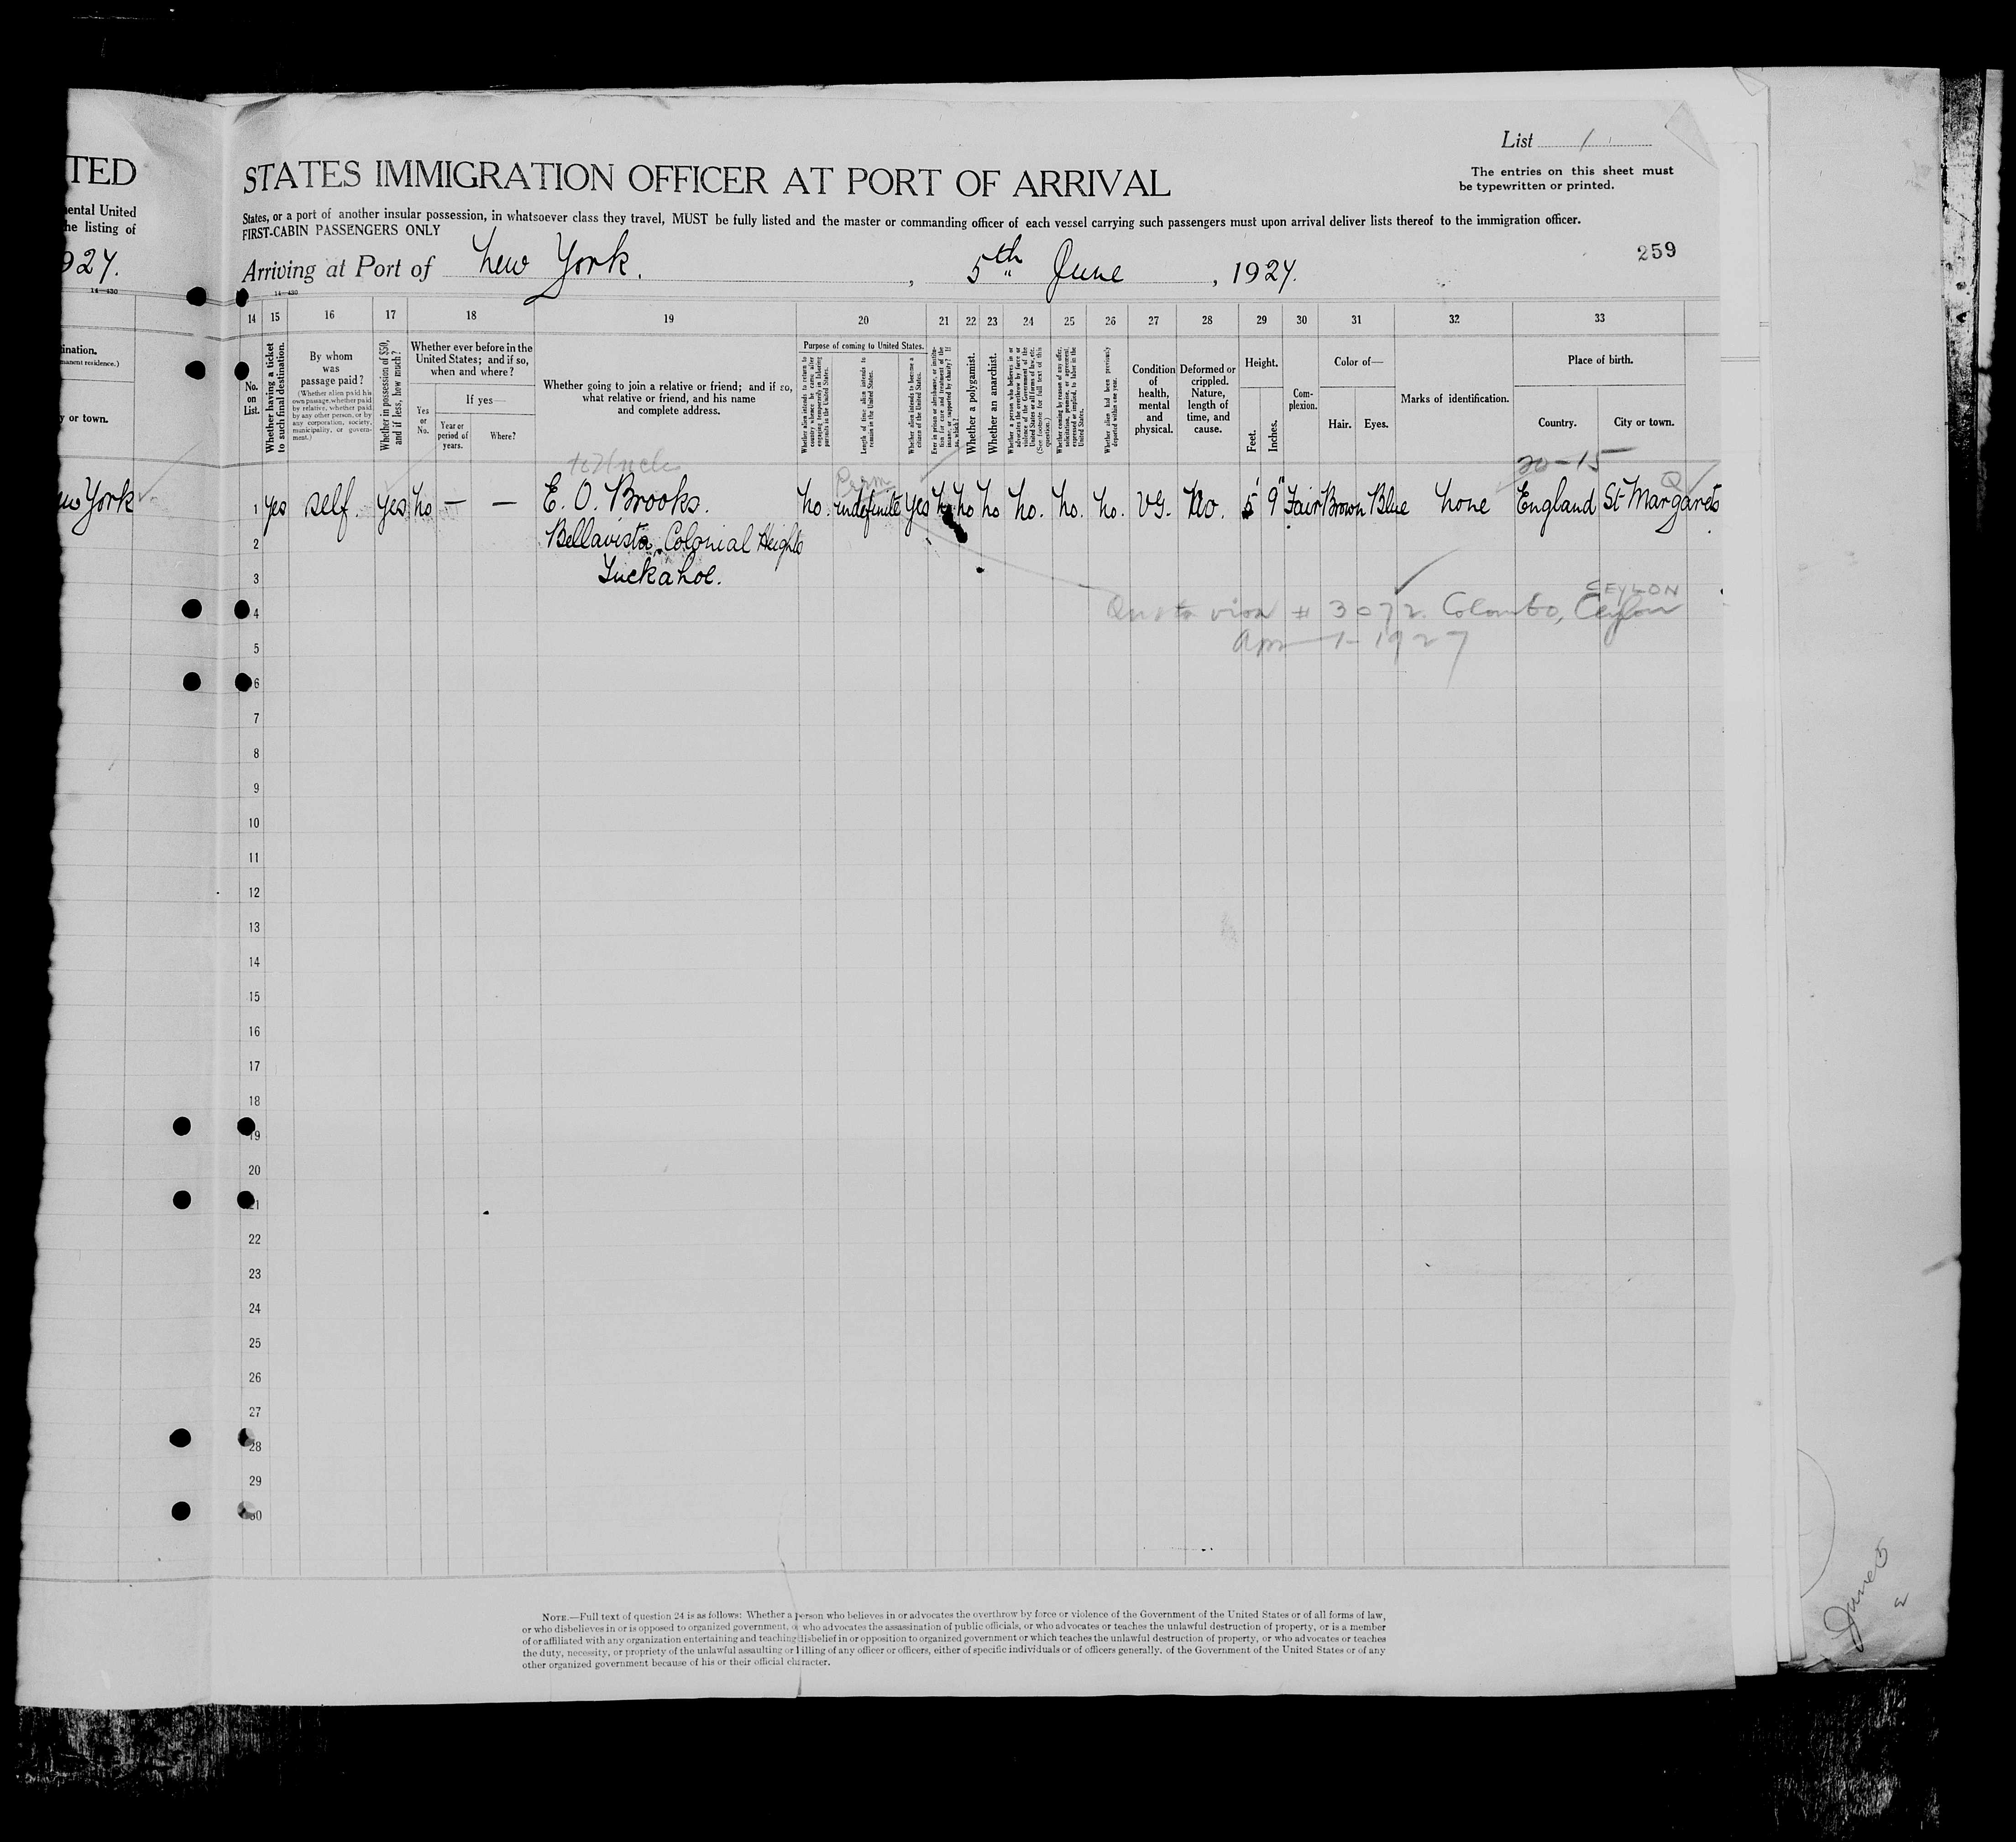 TED
ental United
he listing of
927.
14—430
ination.
manent residence.)
y or town.
ew York
List 1
The entries on this sheet must
be typewritten or printed.
STATES IMMIGRATION OFFICER AT PORT OF ARRIVAL
States, or a port of another insular possession, in whatsoever class they travel, MUST be fully listed and the master or commanding officer of each vessel carrying such passengers must upon arrival deliver lists thereof to the immigration officer.
FIRST-CABIN PASSENGERS ONLY
259
Arriving at Port of New York. , 5th June , 1927.
14—430
14 15 16 17 18 19 20 21 22 23 24 25 26 27 28 29 30 31 32 33
No. on List.
Whether having a ticket to such final destination.
By whom was passage paid?
(Whether alien paid his own passage, whether paid by relative, whether paid by any other person, or by any corporation, society, municipality, or government.)
Whether in possession of $50, and if less, how much?
Whether ever before in the United States; and if so, when and where?
Yes or No.
If yes—
Year or period of years.
Where?
Whether going to join a relative or friend; and if so, what relative or friend, and his name and complete address.
Purpose of coming to United States.
Whether alien intends to return to country whence he came after engaging temporarily in laboring pursuits in the United States.
Length of time alien intends to remain in the United States.
Whether alien intends to become a citizen of the United States.
Ever in prison or almshouse, or institution for care and treatment of the insane, or supported by charity? If so, which?
Whether a polygamist.
Whether an anarchist.
Whether a person who believes in or advocates the overthrow by force or violence of the Government of the United States or all forms of law, etc. (See footnote for full text of this question.)
Whether coming by reason of any offer, solicitation, promise, or agreement, expressed or implied, to labor in the United States.
Whether alien had been previously deported within one year.
Condition of health, mental and physical.
Deformed or crippled. Nature, length of time, and cause.
Height.
Feet.
Inches.
Complexion.
Color of—
Hair.
Eyes.
Marks of identification.
Place of birth.
Country.
City or town.
to Uncle
Perm
20-15
Q
1 yes self. yes no — — E. O. Brooks. no. indefinite yes no no no no. no. no. VG. No. 5' 9" Fair Brown Blue none England St-Margarets
2 Bellavista, Colonial Heights
3 Tuckahoe.
CEYLON
4 Quota visa # 3072. Colombo, Ceylon
5 Apr 1- 1927
6
7
8
9
10
11
12
13
14
15
16
17
18
19
20
21
22
23
24
25
26
27
28
29
30
NOTE.—Full text of question 24 is as follows: Whether a person who believes in or advocates the overthrow by force or violence of the Government of the United States or of all forms of law,
or who disbelieves in or is opposed to organized government, or who advocates the assassination of public officials, or who advocates or teaches the unlawful destruction of property, or is a member
of or affiliated with any organization entertaining and teaching disbelief in or opposition to organized government or which teaches the unlawful destruction of property, or who advocates or teaches
the duty, necessity, or propriety of the unlawful assaulting or killing of any officer or officers, either of specific individuals or of officers generally, of the Government of the United States or of any
other organized government because of his or their official character.